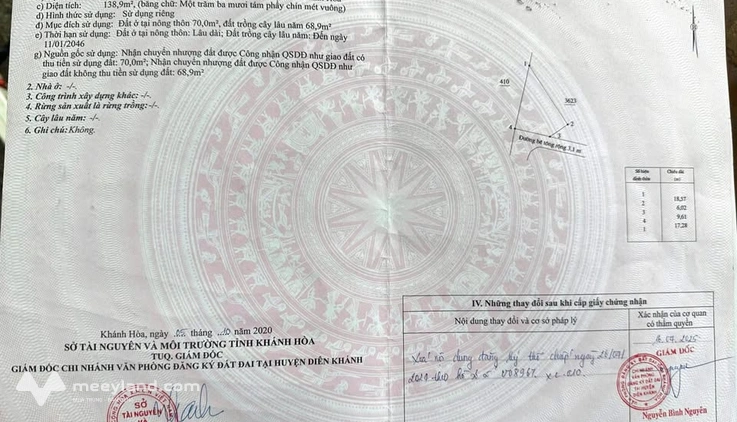 c) Diện tích: 138,9m², (bằng chữ: Một trăm ba mươi tám phẩy chín mét vuông)
d) Hình thức sử dụng: Sử dụng riêng
đ) Mục đích sử dụng: Đất ở tại nông thôn 70,0m², đất trồng cây lâu năm 68,9m²
e) Thời hạn sử dụng: Đất ở tại nông thôn: Lâu dài; Đất trồng cây lâu năm: Đến ngày
11/01/2046
g) Nguồn gốc sử dụng: Nhận chuyển nhượng đất được Công nhận QSDĐ như giao đất có
thu tiền sử dụng đất: 70,0m²; Nhận chuyển nhượng đất được Công nhận QSDĐ như
giao đất không thu tiền sử dụng đất: 68,9m²
2. Nhà ở: -/-
3. Công trình xây dựng khác: -/-
4. Rừng sản xuất là rừng trồng:-/-
5. Cây lâu năm: -/-
6. Ghi chú: Không.
1
410
3623
2
4
3
Đường bê tông rộng 3,3 m
Số hiệu đỉnh thửa
Chiều dài (m)
1
18,57
2
6,02
3
9,61
4
17,28
1
Khánh Hòa, ngày tháng 10 năm 2020
SỞ TÀI NGUYÊN VÀ MÔI TRƯỜNG TỈNH KHÁNH HÒA
TUQ. GIÁM ĐỐC
GIÁM ĐỐC CHI NHÁNH VĂN PHÒNG ĐĂNG KÝ ĐẤT ĐAI TẠI HUYỆN DIÊN KHÁNH
SỞ
TÀI NGUYÊN
VÀ
IV. Những thay đổi sau khi cấp giấy chứng nhận
Nội dung thay đổi và cơ sở pháp lý
Xác nhận của cơ quan
có thẩm quyền
nội dung đăng ký thế chấp ngày
hồ sơ số
GIÁM ĐỐC
CHI NHÁNH
VĂN PHÒNG
ĐĂNG KÝ ĐẤT ĐAI
TẠI HUYỆN
DIÊN KHÁNH
Nguyễn Bình Nguyên
meeyland.com